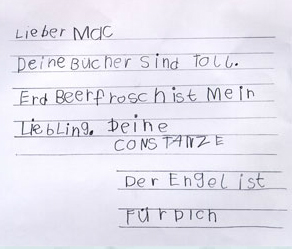 Lieber Mac
Deine Bücher sind toll.
ErdBeerfrosch ist Mein
Liebling. Deine
CONSTANZE
Der Engel ist
Für Dich